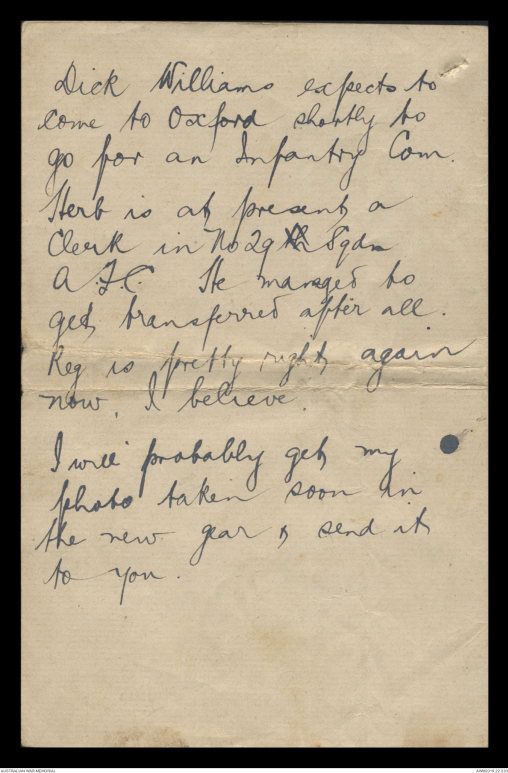 Dick Williams expects to
come to Oxford shortly to
go for an Infantry Com.
Herb is at present a
Clerk in No 29 Sqdn
A.F.C. He managed to
get transferred after all.
Reg is pretty right again
now, I believe.
I will probably get my
photo taken soon in
the new gear & send it
to you.
AUSTRALIAN WAR MEMORIAL